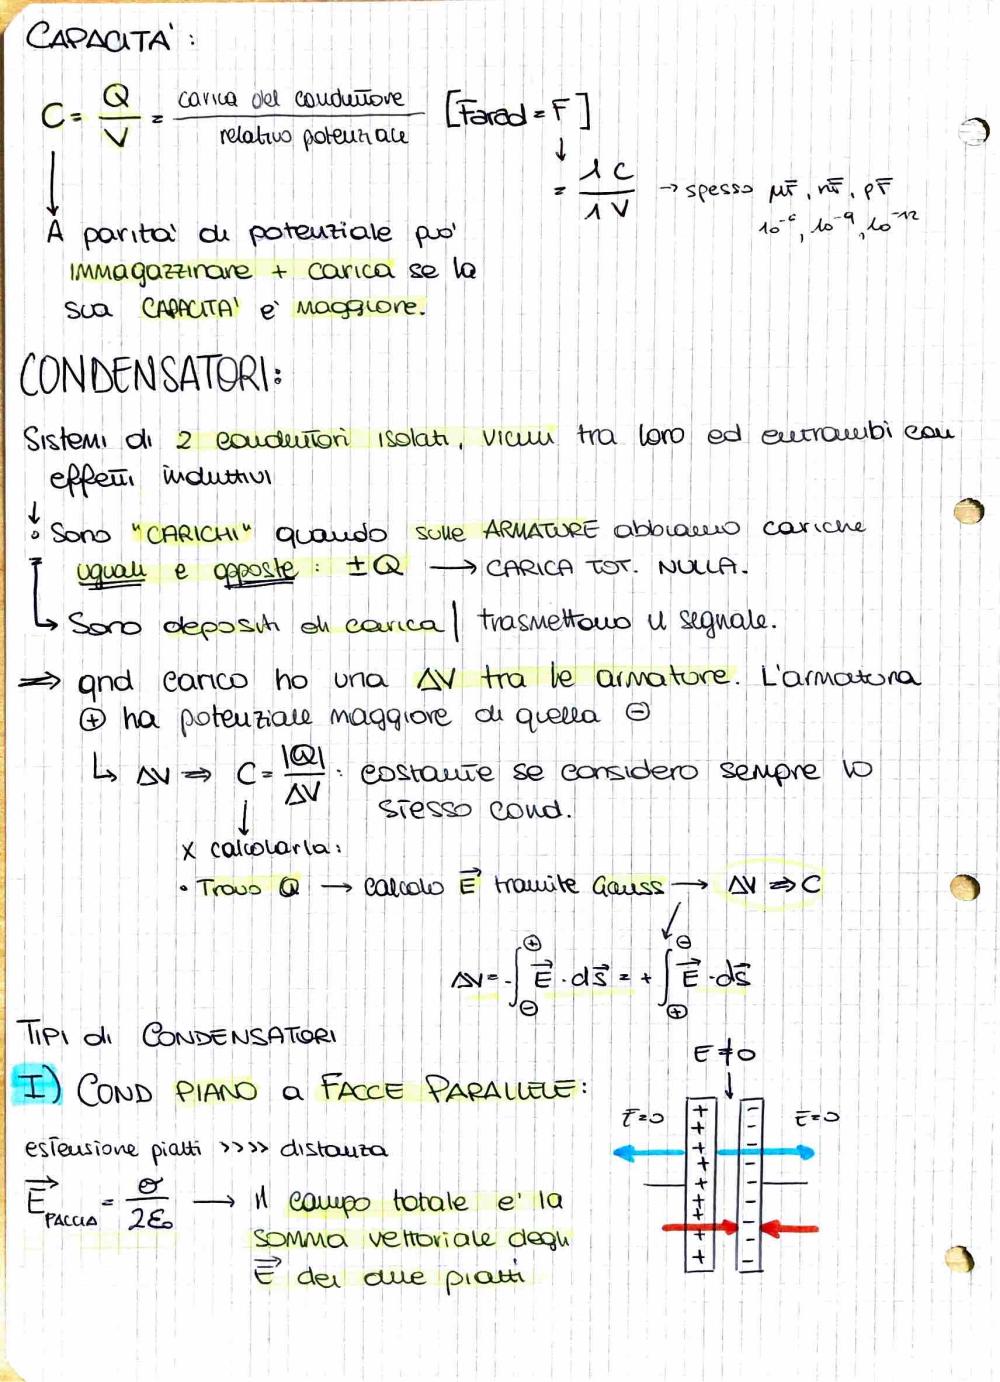 CAPACITA' :
C = Q/V = carica del conduttore / relativo potenziale [Farad = F]
↓
= 1 C / 1 V → spesso μF, nF, pF
10⁻⁶, 10⁻⁹, 10⁻¹²
A parita' di potenziale puo'
IMMAgazzinare + carica se la
sua CAPACITA' e' MAGGIORE.
CONDENSATORI:
Sistemi di 2 conduttori isolati, vicini tra loro ed entrambi con
effetti induttivi
↓
• Sono "CARICHI" quando sulle ARMATURE abbiamo cariche
uguali e opposte : ±Q → CARICA TOT. NULLA.
↳ Sono depositi di carica | trasmettono il segnale.
⇒ qnd carico ho una ΔV tra le armature. L'armatura
⊕ ha potenziale maggiore di quella ⊖
↳ ΔV ⇒ C = |Q|/ΔV : costante se considero sempre lo
stesso cond.
↓
x calcolarla:
• Trovo Q → calcolo E⃗ tramite Gauss → ΔV ⇒ C
ΔV = -∫_⊖^⊕ E⃗ · ds⃗ = + ∫_⊕^⊖ E⃗ · ds⃗
TIPI di CONDENSATORI
E ≠ 0
↓
I) COND PIANO a FACCE PARALLELE:
E=0 E=0
estensione piatti >>>> distanza
E⃗ FACCIA = σ/2ε₀ → Il campo totale e' la
somma vettoriale degli
E⃗ dei due piatti
+ + + + + + + + +
- - - - - - - - -